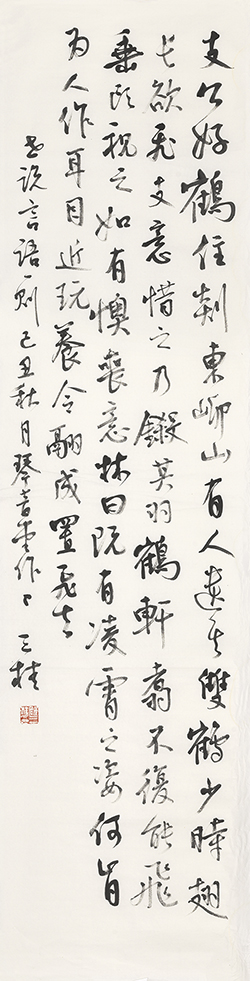 支公好鶴住剡東岇山有人遺其雙鶴少時翅
長欲飛支意惜之乃鎩其羽鶴軒翥不復能飛
垂頭視之如有懊喪意林曰既有凌霄之姿何肯
为人作耳目近玩養令翮成置飛去
世説言語一則己丑秋月琴音堂作 三桂